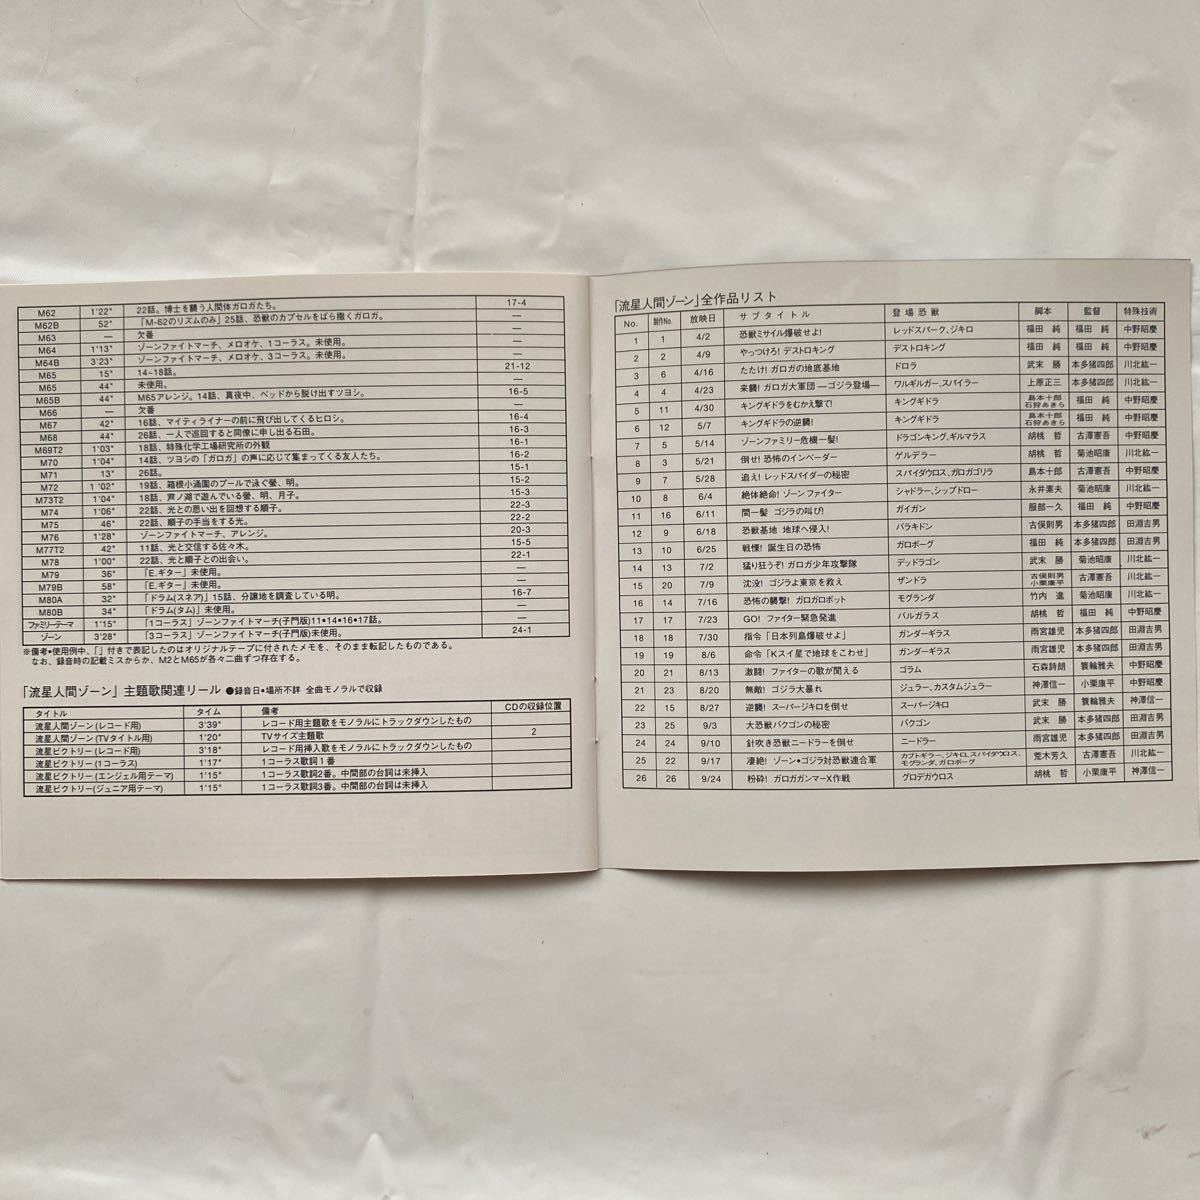 M62 1'22" 22話。博士を襲う人間体ガロガたち。 17-4
M62B 52" 「M-62のリズムのみ」25話、恐獣のカプセルをばら撒くガロガ。 —
M63 — 欠番 —
M64 1'13" ゾーンファイトマーチ、メロオケ、1コーラス。未使用。 —
M64B 3'23" ゾーンファイトマーチ、メロオケ、3コーラス。未使用。 21-12
M65 15" 14~18話。 —
M65 44" 未使用。 —
M65B 44" M65アレンジ。14話、真夜中、ベッドから脱け出すツヨシ。 16-5
M66 — 欠番 —
M67 42" 16話、マイティライナーの前に飛び出してくるヒロシ。 16-4
M68 44" 26話、一人で巡回すると同僚に申し出る石田。 16-3
M69T2 1'03" 18話、特殊化学工場研究所の外観 16-1
M70 1'04" 14話、ツヨシの「ガロガ」の声に応じて集まってくる友人たち。 16-2
M71 13" 26話。 15-1
M72 1'02" 19話、箱根小涌園のプールで泳ぐ螢、明。 15-2
M73T2 1'04" 18話、芦ノ湖で遊んでいる螢、明、月子。 15-3
M74 1'06" 22話、光との思い出を回想する順子。 22-3
M75 46" 22話、順子の手当をする光。 22-2
M76 1'28" ゾーンファイトマーチ、アレンジ。 20-3
M77T2 42" 11話、光と交信する佐々木。 15-5
M78 1'00" 22話、光と順子との出会い。 22-1
M79 36" 「E.ギター」未使用。 —
M79B 58" 「E.ギター」未使用。 —
M80A 32" 「ドラム(スネア)」15話、分譲地を調査している明。 16-7
M80B 34" 「ドラム(タム)」未使用。 —
ファミリーテーマ 1'15" 「1コーラス」ゾーンファイトマーチ(子門版)11•14•16•17話。 —
ゾーン 3'28" 「3コーラス」ゾーンファイトマーチ(子門版)未使用。 24-1
※備考•使用例中、「」付きで表記したのはオリジナルテープに付されたメモを、そのまま転記したものである。
なお、録音時の記載ミスからか、M2とM65が各々二曲ずつ存在する。
「流星人間ゾーン」主題歌関連リール ●録音日•場所不詳 全曲モノラルで収録
タイトル タイム 備考 CDの収録位置
流星人間ゾーン(レコード用) 3'39" レコード用主題歌をモノラルにトラックダウンしたもの
流星人間ゾーン(TVタイトル用) 1'20" TVサイズ主題歌 2
流星ビクトリー(レコード用) 3'18" レコード用挿入歌をモノラルにトラックダウンしたもの
流星ビクトリー(1コーラス) 1'17" 1コーラス歌詞1番
流星ビクトリー(エンジェル用テーマ) 1'15" 1コーラス歌詞2番。中間部の台詞は未挿入
流星ビクトリー(ジュニア用テーマ) 1'15" 1コーラス歌詞3番。中間部の台詞は未挿入
「流星人間ゾーン」全作品リスト
No. 制作No. 放映日 サブタイトル 登場恐獣 脚本 監督 特殊技術
1 1 4/2 恐獣ミサイル爆破せよ! レッドスパーク、ジキロ 福田 純 福田 純 中野昭慶
2 2 4/9 やっつけろ! デストロキング デストロキング 福田 純 福田 純 中野昭慶
3 6 4/16 たたけ! ガロガの地底基地 ドロラ 武末 勝 本多猪四郎 川北紘一
4 4 4/23 来襲! ガロガ大軍団 —ゴジラ登場— ワルギルガー、スパイラー 上原正三 本多猪四郎 川北紘一
5 11 4/30 キングギドラをむかえ撃て! キングギドラ 島本十郎 石狩あきら 福田 純 中野昭慶
6 12 5/7 キングギドラの逆襲! キングギドラ 島本十郎 石狩あきら 福田 純 中野昭慶
7 5 5/14 ゾーンファミリー危機一髪! ドラゴンキング、ギルマラス 胡桃 哲 古澤憲吾 中野昭慶
8 3 5/21 倒せ! 恐怖のインベーダー ゲルデラー 胡桃 哲 菊池昭康 川北紘一
9 7 5/28 追え! レッドスパイダーの秘密 スパイダウロス、ガロガゴリラ 島本十郎 古澤憲吾 中野昭慶
10 8 6/4 絶体絶命! ゾーンファイター シャドラー、シップドロー 永井素夫 菊池昭康 川北紘一
11 16 6/11 間一髪 ゴジラの叫び! ガイガン 服部一久 福田 純 中野昭慶
12 9 6/18 恐獣基地 地球へ侵入! バラキドン 古俣則男 本多猪四郎 田淵吉男
13 10 6/25 戦慄! 誕生日の恐怖 ガロボーグ 福田 純 本多猪四郎 田淵吉男
14 13 7/2 猛り狂うぞ! ガロガ少年攻撃隊 デッドラゴン 武末 勝 菊池昭康 川北紘一
15 20 7/9 沈没! ゴジラよ東京を救え ザンドラ 古俣則男 小栗康平 古澤憲吾 川北紘一
16 14 7/16 恐怖の襲撃! ガロガロボット モグランダ 竹内 進 菊池昭康 川北紘一
17 17 7/23 GO! ファイター緊急発進 バルガラス 胡桃 哲 福田 純 中野昭慶
18 18 7/30 指令「日本列島爆破せよ」 ガンダーギラス 雨宮雄児 本多猪四郎 田淵吉男
19 19 8/6 命令「Kスイ星で地球をこわせ」 ガンダーギラス 雨宮雄児 本多猪四郎 田淵吉男
20 21 8/13 激闘! ファイターの歌が聞える ゴラム 石森詩朗 簑輪雅夫 中野昭慶
21 23 8/20 無敵! ゴジラ大暴れ ジュラー、カスタムジュラー 神澤信一 小栗康平 中野昭慶
22 15 8/27 逆襲! スーパージキロを倒せ スーパージキロ 武末 勝 簑輪雅夫 神澤信一
23 25 9/3 大恐獣バクゴンの秘密 バクゴン 武末 勝 本多猪四郎 田淵吉男
24 24 9/10 針吹き恐獣ニードラーを倒せ ニードラー 雨宮雄児 本多猪四郎 田淵吉男
25 22 9/17 凄絶! ゾーン•ゴジラ対恐獣連合軍 カブトギラー、ジキロ、スパイダウロス、モグランダ、ガロボーグ 荒木芳久 古澤憲吾 川北紘一
26 26 9/24 粉砕! ガロガガンマーX作戦 グロデガウロス 胡桃 哲 小栗康平 神澤信一